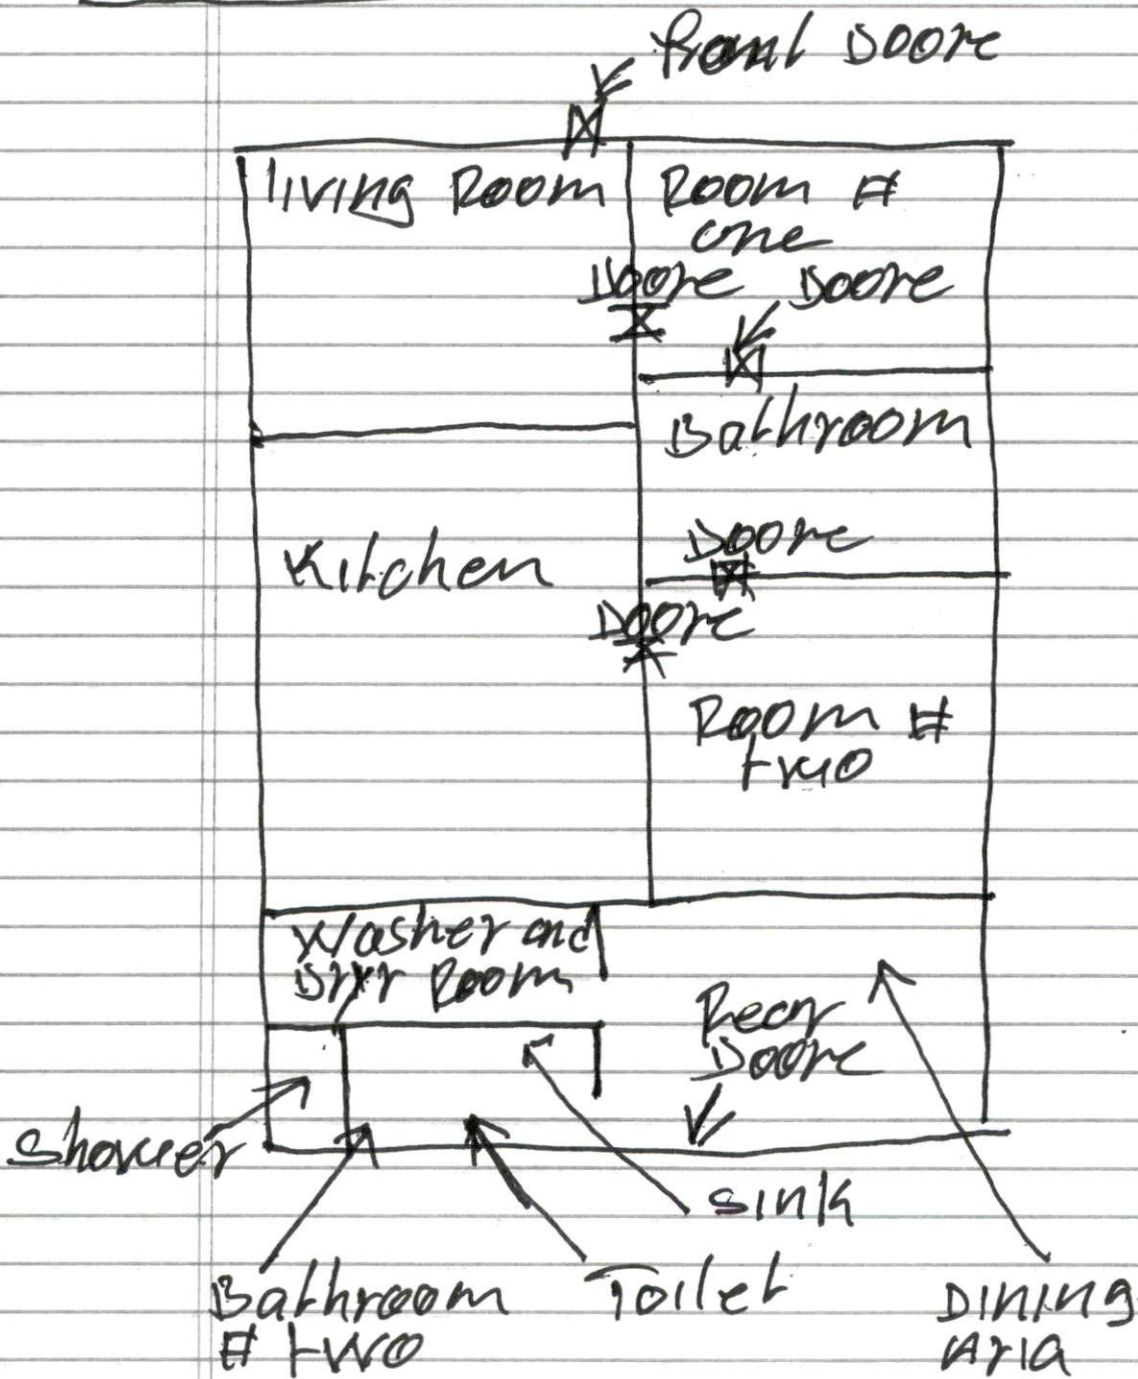 Front Doore
living Room
Room #
one
Doore
Doore
Bathroom
Doore
Kitchen
Doore
Room #
two
Washer and
Dryr Room
Rear
Doore
Shower
Sink
Bathroom
# two
Toilet
Dining
Aria